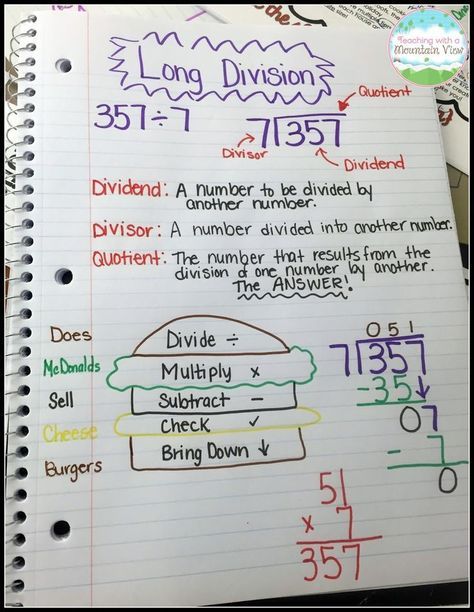 Teaching with a
Mountain View
Long Division
357÷7
7)357
Quotient
Divisor
Dividend
Dividend: A number to be divided by
another number.
Divisor: A number divided into another number.
Quotient: The number that results from the
division of one number by another.
The ANSWER!
Does
McDonalds
Sell
Cheese
Burgers
Divide ÷
Multiply x
Subtract −
Check ✓
Bring Down ↓
051
7)357
-35↓
07
- 7
0
51
x 7
357